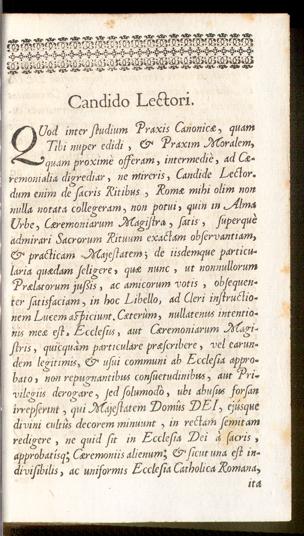 Candido Lectori.
QUod inter studium Praxis Canonicæ, quam
Tibi nuper edidi, & Praxim Moralem,
quam proximè offeram, intermediè, ad Cæ-
remonialia digrediar, ne mireris, Candide Lector.
dum enim de sacris Ritibus, Romæ mihi olim non
nulla notata collegeram, non potui, quin in Alma
Urbe, Cæremoniarum Magistra, satis, superquè
admirari Sacrorum Rituum exactam observantiam,
& practicam Majestatem; de iisdemque particu-
laria quædam seligere, quæ nunc, ut nonnullorum
Prælatorum jussis, ac amicorum votis, obsequen-
ter satisfaciam, in hoc Libello, ad Cleri instructio-
nem Lucem aspiciunt, Cæterùm, nullatenus intentio-
nis meæ est, Ecclesiis, aut Cæremoniarum Magi-
stris, quicquàm particulare præscribere, vel earun-
dem legitimis, & usui communi ab Ecclesia appro-
bato, non repugnantibus consuetudinibus, aut Pri-
vilegiis derogare, sed solummodò, ubi abusus forsan
irrepserint, qui Majestatem Domûs DEI, ejúsque
divini cultûs decorem minuunt, in rectam semitam
redigere, ne quid sit in Ecclesia Dei à sacris,
approbatisq; Cæremoniis alienum; & sicut una est in-
divisibilis, ac uniformis Ecclesia Catholica Romana,
ita